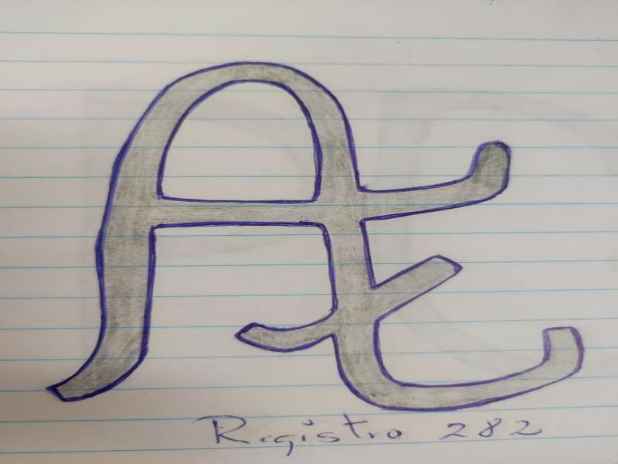 Registro 282